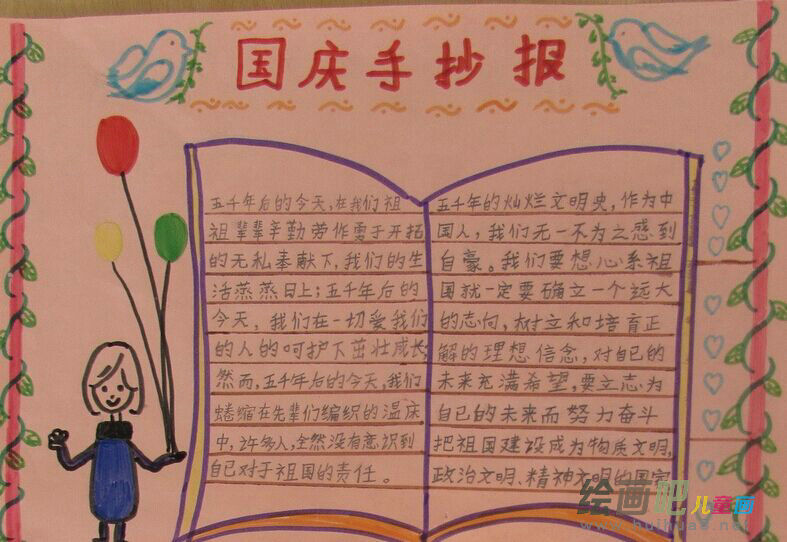 国庆手抄报
五千年后的今天,在我们祖
祖辈辈辛勤劳作勇于开拓
的无私奉献下,我们的生
活蒸蒸日上;五千年后的
今天,我们在一切爱我们
的人的呵护下茁壮成长;
然而,五千年后的今天,我们
蜷缩在先辈们编织的温床
中,许多人,全然没有意识到
自己对于祖国的责任。
五千年的灿烂文明史,作为中
国人,我们无一不为之感到
自豪。我们要想心系祖
国就一定要确立一个远大
的志向,树立和培育正
解的理想信念,对自己的
未来充满希望,要立志为
自己的未来而努力奋斗
把祖国建设成为物质文明,
政治文明、精神文明的国家
绘画吧儿童网
www.huihua8.net